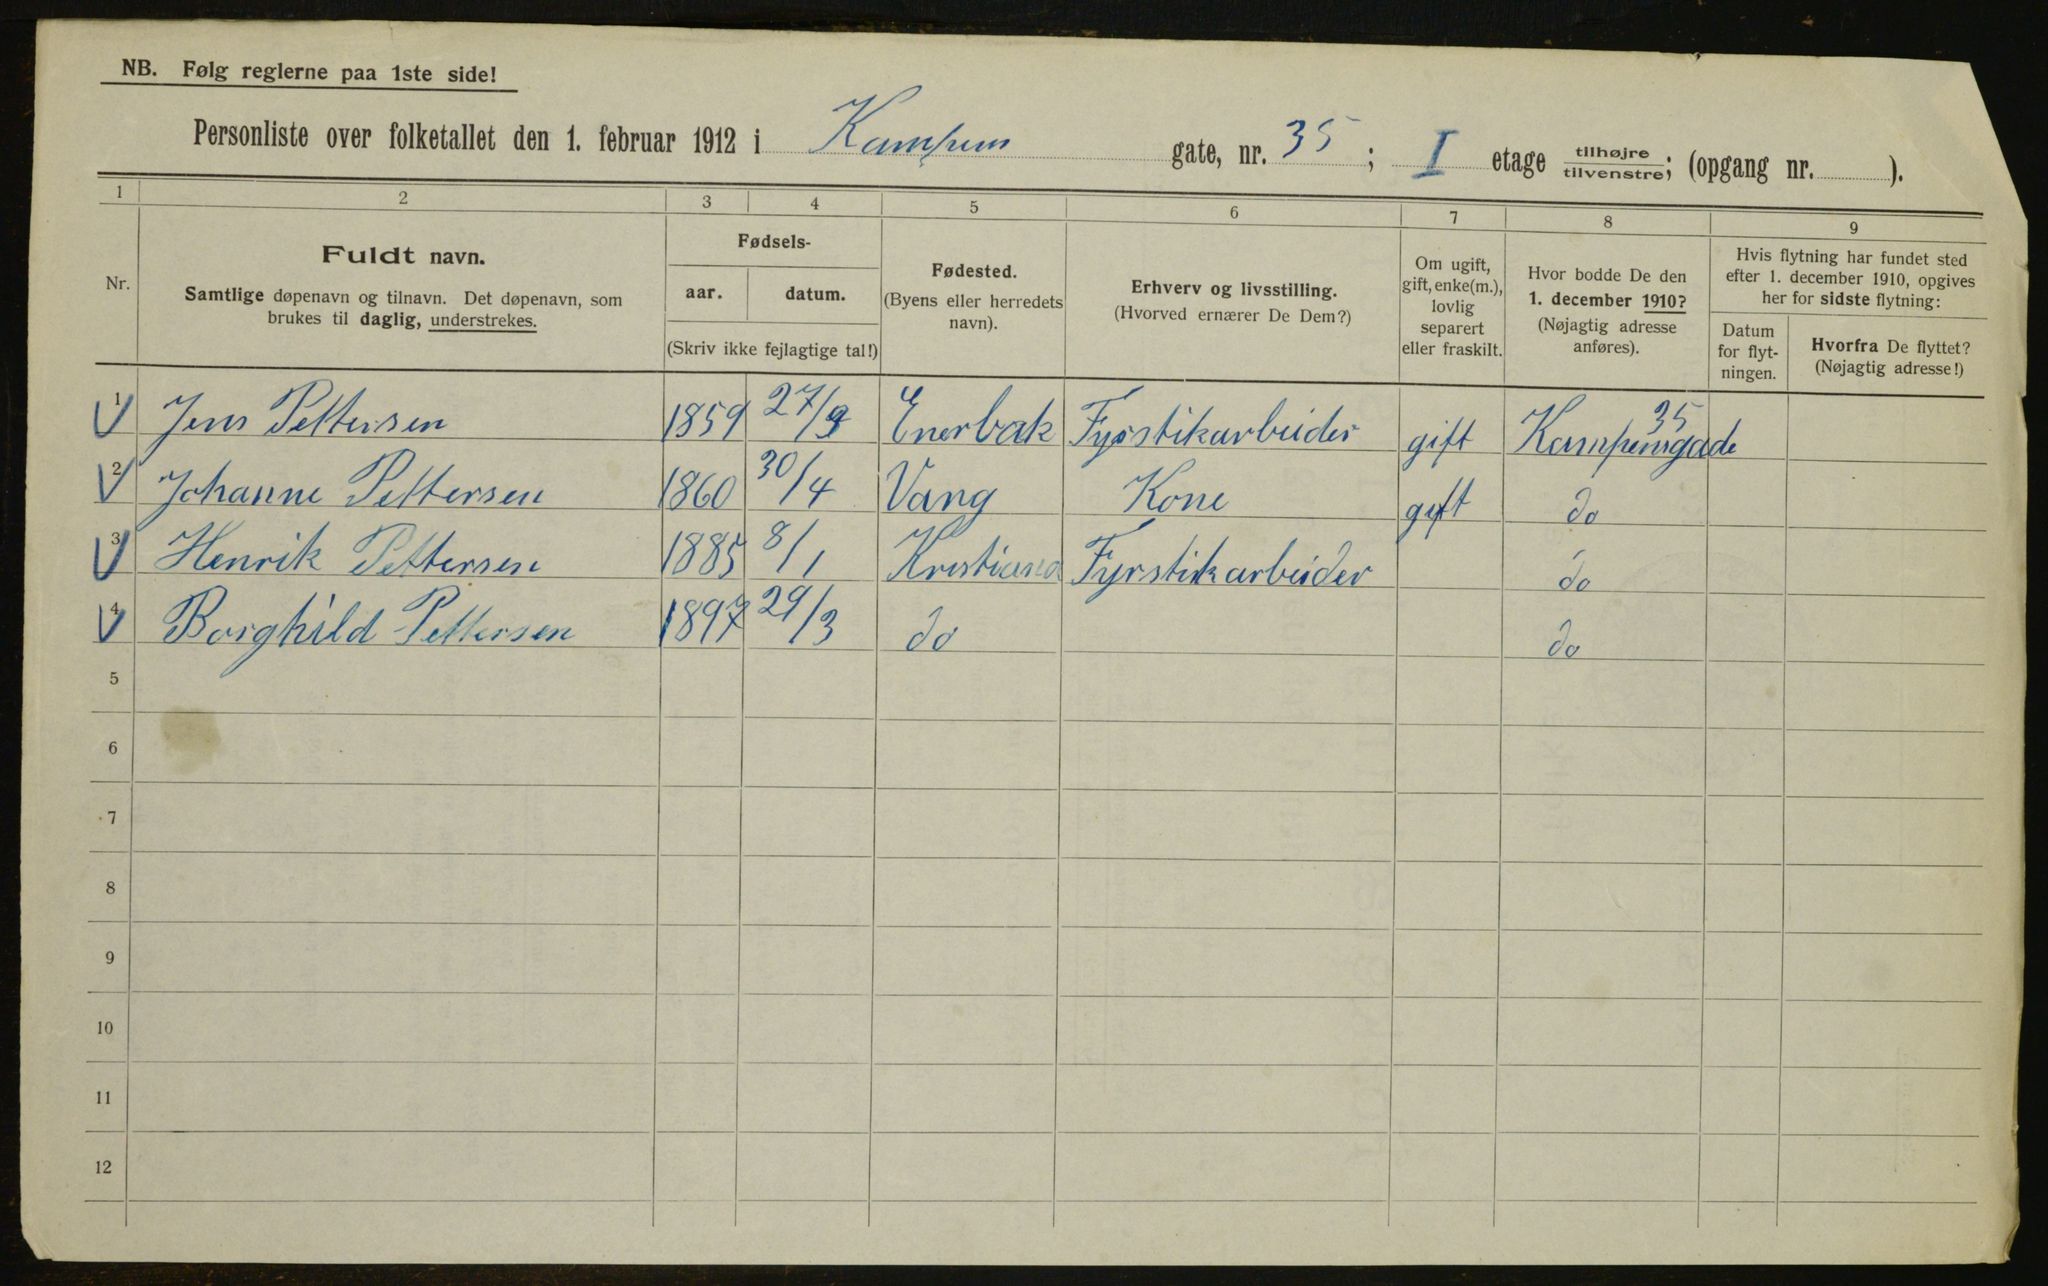 NB. Følg reglerne paa 1ste side!
Personliste over folketallet den 1. februar 1912 i Kampens gate, nr. 35 ; I etage tilhøjre tilvenstre; (opgang nr. ).
1 2 3 4 5 6 7 8 9
Nr.
Fuldt navn.
Samtlige døpenavn og tilnavn. Det døpenavn, som
brukes til daglig, understrekes.
Fødsels-
aar. datum.
(Skriv ikke fejlagtige tal!)
Fødested.
(Byens eller herredets
navn).
Erhverv og livsstilling.
(Hvorved ernærer De Dem?)
Om ugift,
gift, enke(m.),
lovlig
separert
eller fraskilt.
Hvor bodde De den
1. december 1910?
(Nøjagtig adresse
anføres).
Hvis flytning har fundet sted
efter 1. december 1910, opgives
her for sidste flytning:
Datum
for flyt-
ningen.
Hvorfra De flyttet?
(Nøjagtig adresse!)
1 Jens Pettersen 1859 27/9 Enerbak Fyrstikarbeider gift Kampensgade 35
2 Johanne Pettersen 1860 30/4 Vang Kone gift do
3 Henrik Pettersen 1885 8/1 Kristiania Fyrstikarbeider do
4 Borghild Pettersen 1897 29/3 do do
5
6
7
8
9
10
11
12